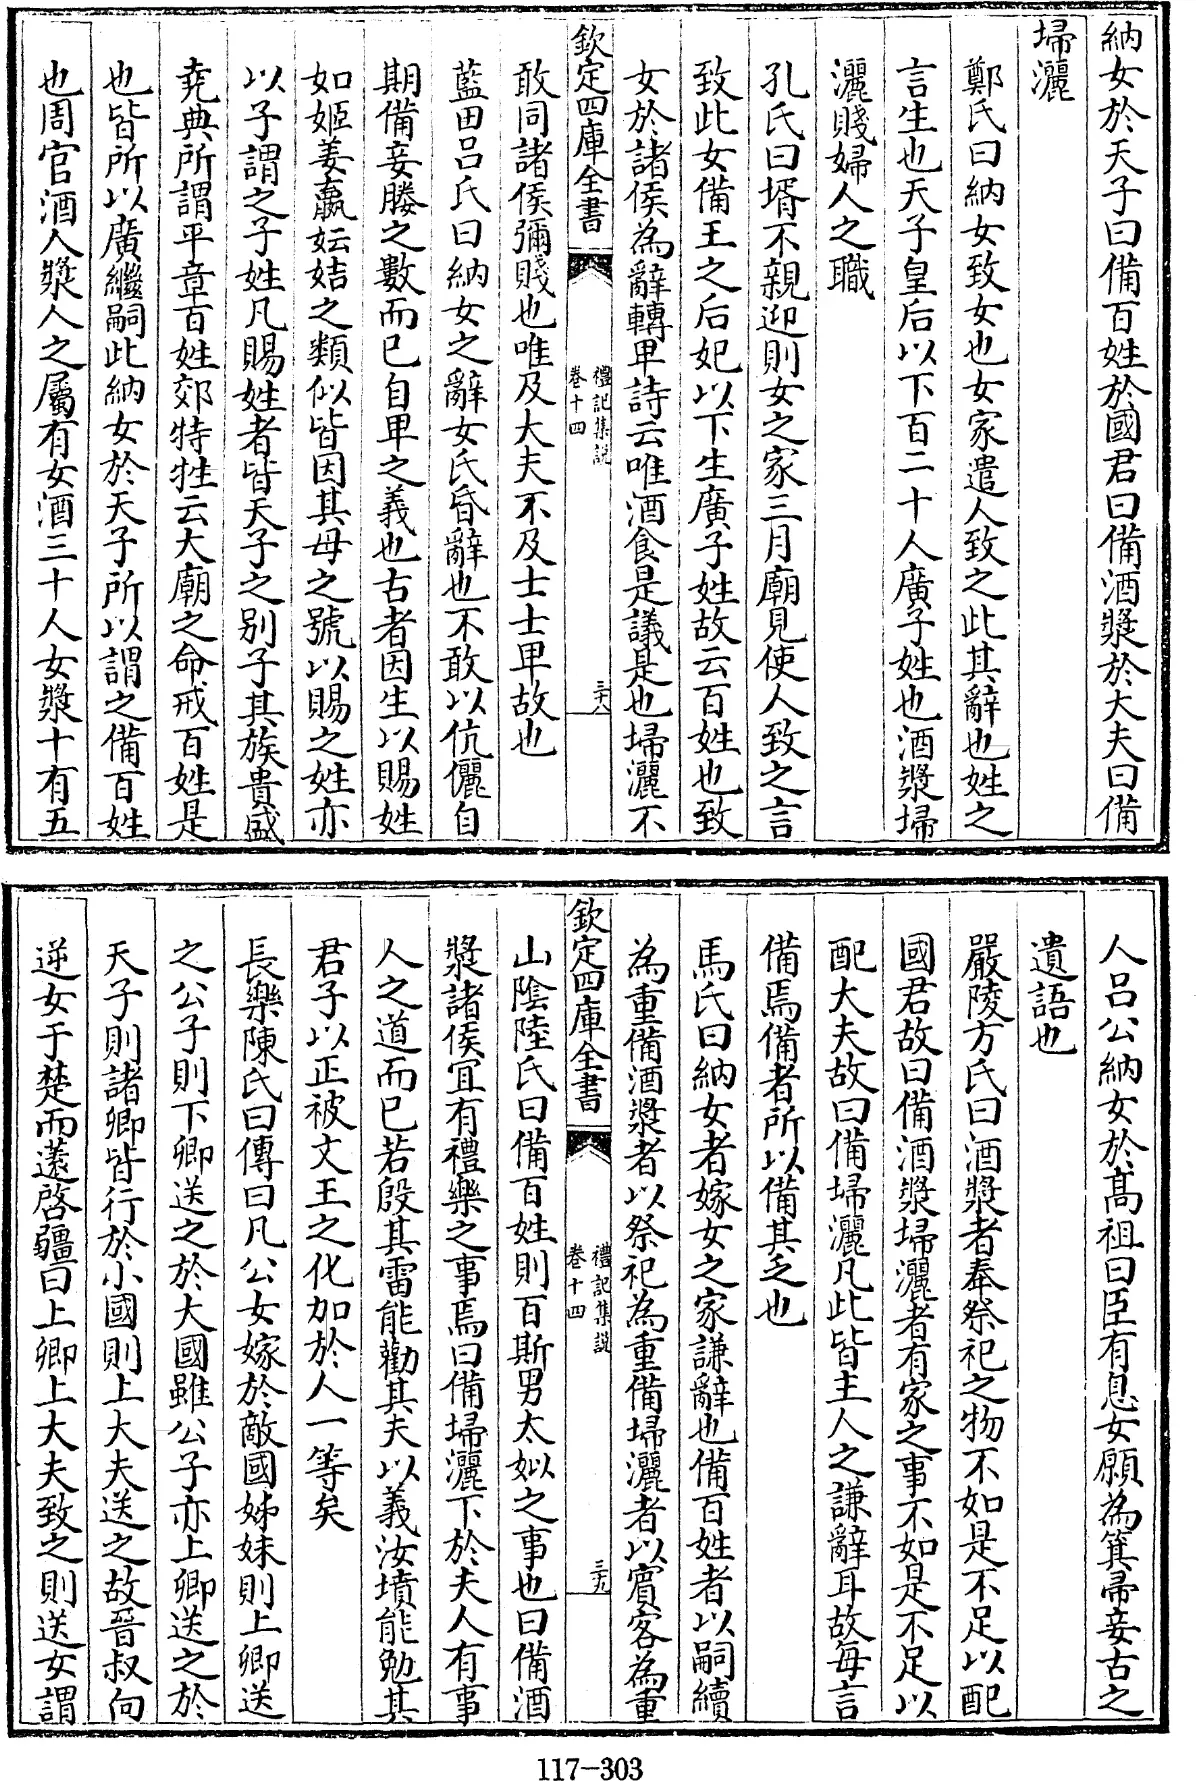 納女於天子曰備百姓於國君曰備酒漿於大夫曰備
埽灑
鄭氏曰納女致女也女家遣人致之此其辭也姓之
言生也天子皇后以下百二十人廣子姓也酒漿埽
灑賤婦人之職
孔氏曰壻不親迎則女之家三月廟見使人致之言
致此女備王之后妃以下生廣子姓故云百姓也致
女於諸侯為辭轉卑詩云唯酒食是議是也埽灑不
欽定四庫全書
禮記集説
卷十四
三十八
敢同諸侯彌賤也唯及大夫不及士士卑故也
藍田呂氏曰納女之辭女氏昏辭也不敢以伉儷自
期備妾媵之數而已自卑之義也古者因生以賜姓
如姬姜嬴妘姞之類似皆因其母之號以賜之姓亦
以子謂之子姓凡賜姓者皆天子之别子其族貴盛
堯典所謂平章百姓郊特牲云大廟之命戒百姓是
也皆所以廣繼嗣此納女於天子所以謂之備百姓
也周官酒人漿人之屬有女酒三十人女漿十有五
人呂公納女於髙祖曰臣有息女願為箕帚妾古之
遺語也
嚴陵方氏曰酒漿者奉祭祀之物不如是不足以配
國君故曰備酒漿埽灑者有家之事不如是不足以
配大夫故曰備埽灑凡此皆主人之謙辭耳故每言
備焉備者所以備其乏也
馬氏曰納女者嫁女之家謙辭也備百姓者以嗣續
為重備酒漿者以祭祀為重備埽灑者以賓客為重
欽定四庫全書
禮記集説
卷十四
三十九
山隂陸氏曰備百姓則百斯男太姒之事也曰備酒
漿諸侯冝有禮樂之事焉曰備埽灑下於夫人有事
人之道而已若殷其雷能勸其夫以義汝墳能勉其
君子以正被文王之化加於人一等矣
長樂陳氏曰傳曰凡公女嫁於敵國姊妹則上卿送
之公子則下卿送之於大國雖公子亦上卿送之於
天子則諸卿皆行於小國則上大夫送之故晉叔向
逆女于楚而薳啓疆曰上卿上大夫致之則送女謂
117-303